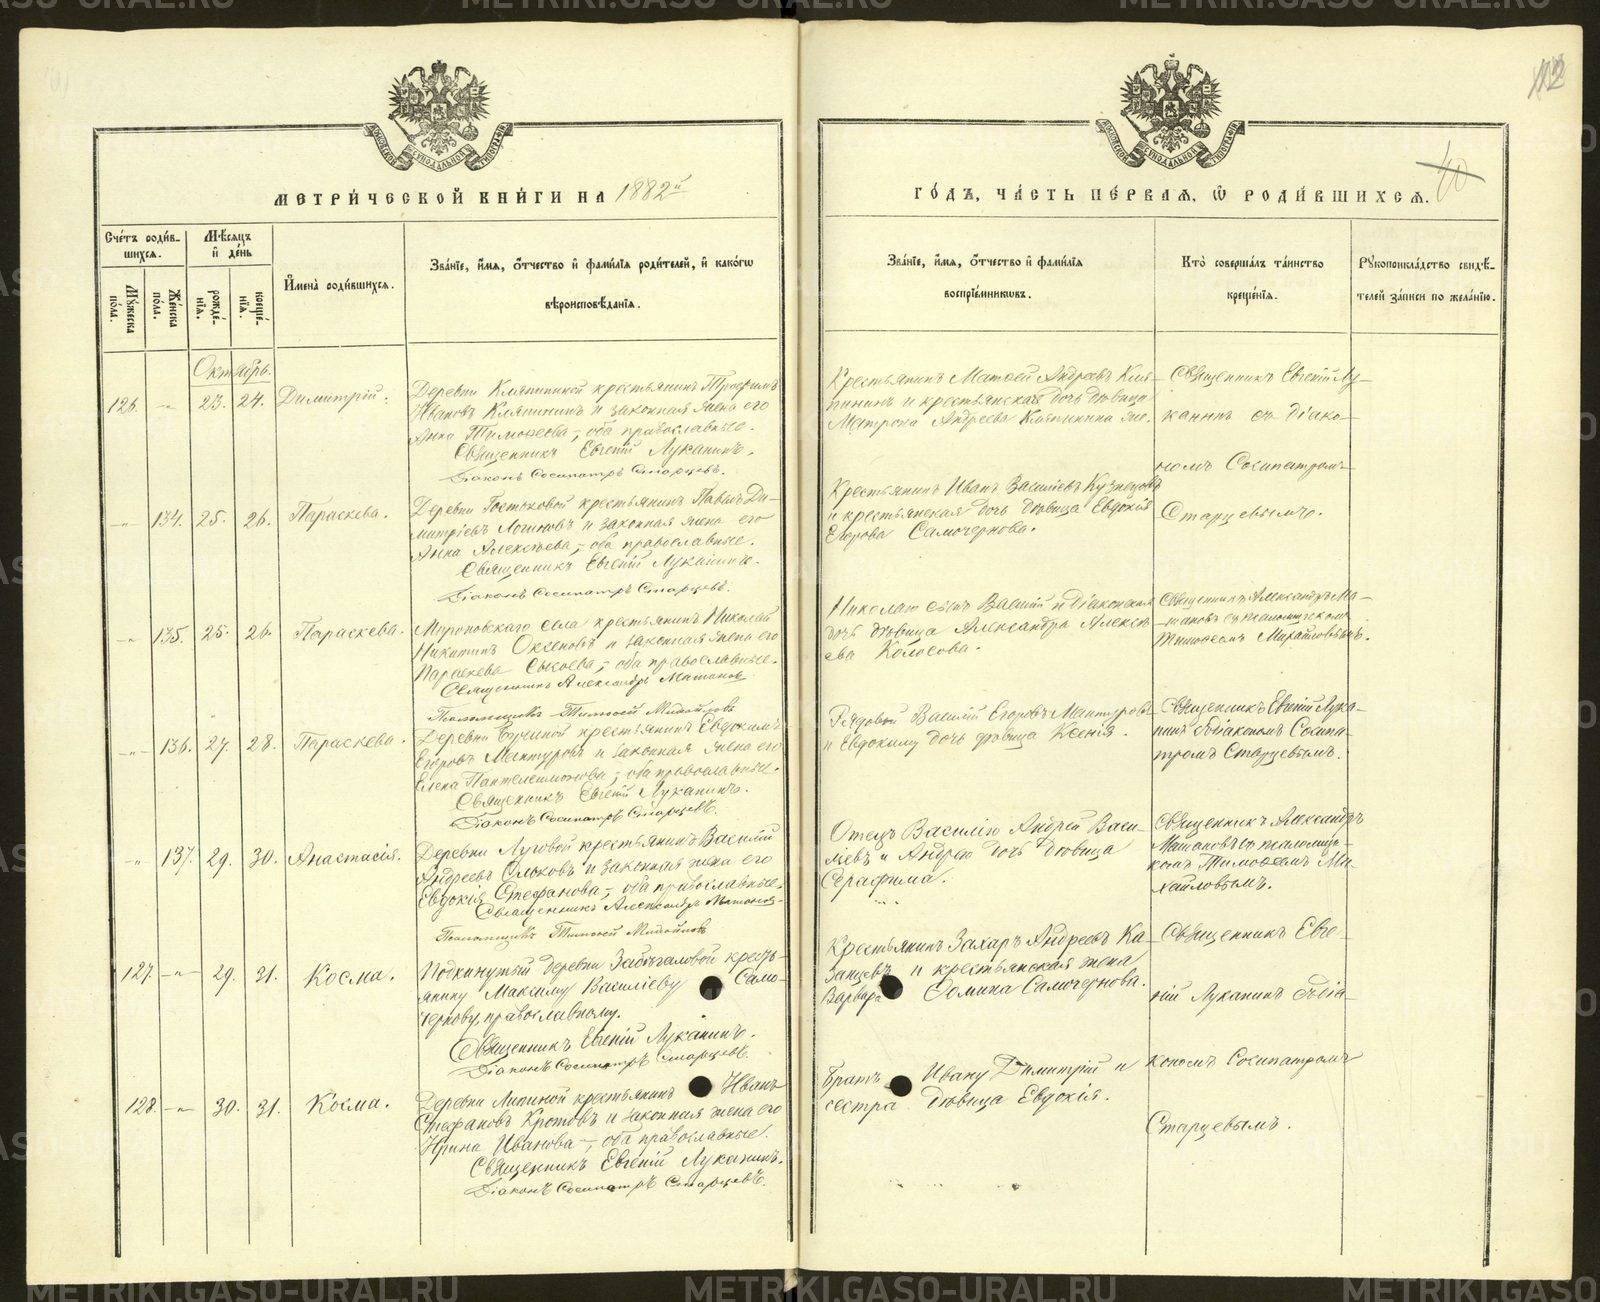 112
60
МЕТРИ́ЧЕСКОЙ КНИ́ГИ НА 1882й
ГО́ДЪ, ЧА́СТЬ ПЕ́РВАЯ, Ѿ РОДИ́ВШИХСЯ.
Сче́тъ роди́в-
шихся.
Му́жеска по́ла.
Же́нска по́ла.
Мѣ́сяцъ
и҆ де́нь
рожде́-
нїя.
креще́-
нїя.
И҆мена̀ роди́вшихся.
Зва́нїе, и҆́мя, о҆́тчество и҆ фами́лїя роди́телей, и҆ како́гѡ
вѣроисповѣ́данїя.
Зва́нїе, и҆́мя, о҆́тчество и҆ фами́лїя
воспрїе́мникѡвъ.
Кто̀ соверша́лъ та́инство
креще́нїя.
Рꙋкоприкла́дство свидѣ́-
телей за́писи по жела́нїю.
Октябрь.
126. - 23. 24. Димитрій.
Деревни Кляпиной крестьянинъ Трофимъ
Ивановъ Кляпининъ и законная жена его
Анна Тимофеева, оба православные.
Священникъ Евгеній Луканинъ.
Діаконъ Сосипатръ Старцевъ.
Крестьянинъ Матѳей Андреевъ Кля-
пининъ и крестьянская дочь дѣвица
Матрона Андреева Кляпинина
Священникъ Евгеній Лу-
канинъ съ діако-
номъ Сосипатромъ
Старцевымъ.
- 134. 25. 26. Параскева.
Деревни крестьянинъ Павелъ Ди-
митріевъ Логиновъ и законная жена его
Анна Алексѣева, оба православные.
Священникъ Евгеній Луканинъ.
Діаконъ Сосипатръ Старцевъ.
Крестьянинъ Иванъ Василіевъ Кузнецовъ
и крестьянская дочь дѣвица Евдокія
Егорова Самочернова.
- 135. 25. 26. Параскева.
Мироновскаго села крестьянинъ Николай
Никитинъ и законная жена его
Параскева, оба православные.
Священникъ Александръ
Псаломщикъ Тимоѳей Михайловъ
Николаю сынъ Василій и діаконская
дочь дѣвица Александра Алексѣ-
ева Колосова.
Священникъ Александръ Ма-
съ псаломщикомъ
Тимоѳеемъ Михайловымъ.
- 136. 27. 28. Параскева.
Деревни крестьянинъ Евдокимъ
Егоровъ Мантуровъ и законная жена его
Елена Пантелеимонова, оба православные.
Священникъ Евгеній Луканинъ.
Діаконъ Сосипатръ Старцевъ.
Рядовой Василій Егоровъ Мантуровъ
и Евдокиму дочь дѣвица Ксенія.
Священникъ Евгеній Лука-
нинъ съ діакономъ Сосипа-
тромъ Старцевымъ.
- 137. 29. 30. Анастасія.
Деревни Луговой крестьянинъ Василій
Андреевъ и законная жена его
Евдокія Стефанова, оба православные.
Священникъ Александръ
Псаломщикъ Тимоѳей Михайловъ
Отецъ Василію Андрей Васи-
ліевъ и Андрею дочь дѣвица
Серафима.
Священникъ Александръ
съ псаломщи-
комъ Тимоѳеемъ Ми-
хайловымъ.
127. - 29. 31. Косма.
Подкинутый деревни кресть-
янину Максиму Василіеву Само-
чернову, православному.
Священникъ Евгеній Луканинъ.
Діаконъ Сосипатръ Старцевъ.
Крестьянинъ Захаръ Андреевъ Ка-
занцевъ и крестьянская жена
Варвара Ѳомина Самочернова.
Священникъ Евге-
ній Луканинъ съ діа-
кономъ Сосипатромъ
Старцевымъ.
128. - 30. 31. Косма.
Деревни Липиной крестьянинъ Иванъ
Стефановъ Кротовъ и законная жена его
Ирина Иванова, оба православные.
Священникъ Евгеній Луканинъ.
Діаконъ Сосипатръ Старцевъ.
Братъ Ивану Димитрій и
сестра дѣвица Евдокія.
METRIKI.GASO-URAL.RU